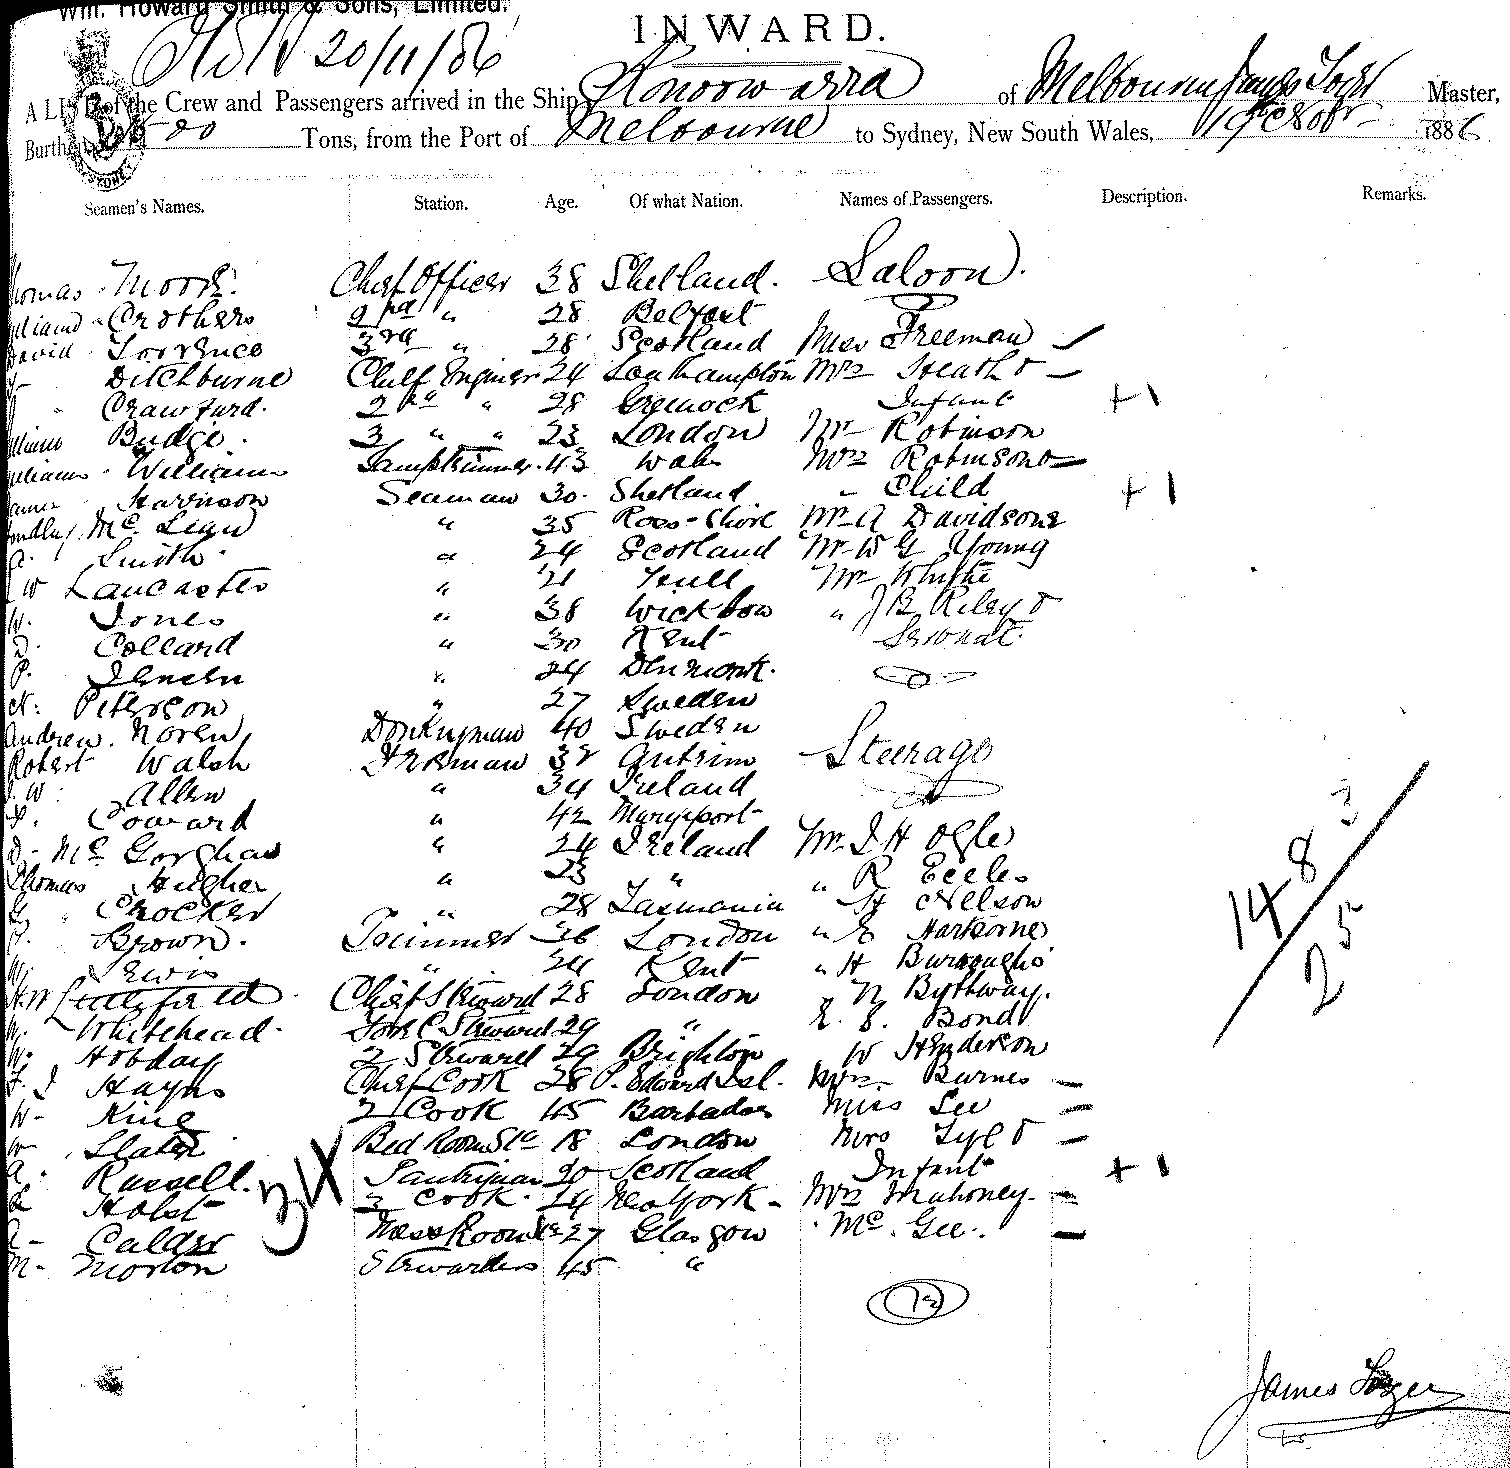 Wm. Howard Smith & Sons, Limited.
INWARD.
20/11/86
A LIST of the Crew and Passengers arrived in the Ship Konoowarra of Melbourne James Master,
Burthen Tons, from the Port of Melbourne to Sydney, New South Wales, 19th 1886
Seamen's Names. Station. Age. Of what Nation. Names of Passengers. Description. Remarks.
Thomas Chief Officer 38 Shetland. Saloon.
William Crothers 2nd " 28 Belfast
David Torrence 3rd " 28 Scotland Miss Freeman
Ditchburne Chief Enginer 24 Southampton Mrs Heath &
Crawfurd. 2nd " 28 Greenock Infant +1
William Budge. 3 " " 23 London Mr Robinson
Williams Lamptrimmer 43 Wales Mrs Robinson &
James Harrison Seaman 30 Shetland " Child +1
Findlay McLean " 35 Ross-Shire Mr A Davidson
Smith " 24 Scotland Mr W G Young
W Lancaster " 21 Hull Mr White
W. Jones " 38 Wicklow " J B Riley &
D. Collard " 30 Kent Servant
P. Jensen " 24 Denmark.
N. Peterson " 27 Sweden
Andrew. Noren Donkeyman 40 Sweden
Robert Walsh Fireman 38 Antrim Steerage
W. Allen " 34 Ireland
Coward " 42 Maryport
Mc " 24 Ireland Mr J H Ogle
Thomas Hughes " 23 " " R Eccles
G Crocker " 28 Tasmania " H Nelson
Brown. Trimmer 36 London " E Harborne
W. Lewis " 24 Kent " H Burroughs
H W Littlefield Chief Steward 28 London " N Bythway.
Whitehead Fore C. Steward 29 " E. E. Bond
W. Hobday 2 Steward 29 Brighton " W Henderson
F. J Chief Cook 28 P. Edward Isl. Mrs. Burnes
W- King 2 Cook 45 Barbados Miss Lee
W Slater Bed Room Std 18 London Mrs Tyl &
A. Russell. Pantryman 20 Scotland Infant +1
Holst 2 Cook 24 New York Mrs Mahoney
Calder Mess Room Std 27 Glasgow " Mc. Gee.
M- Morton Stewardess 45 "
34
14 8 3
25
12
James